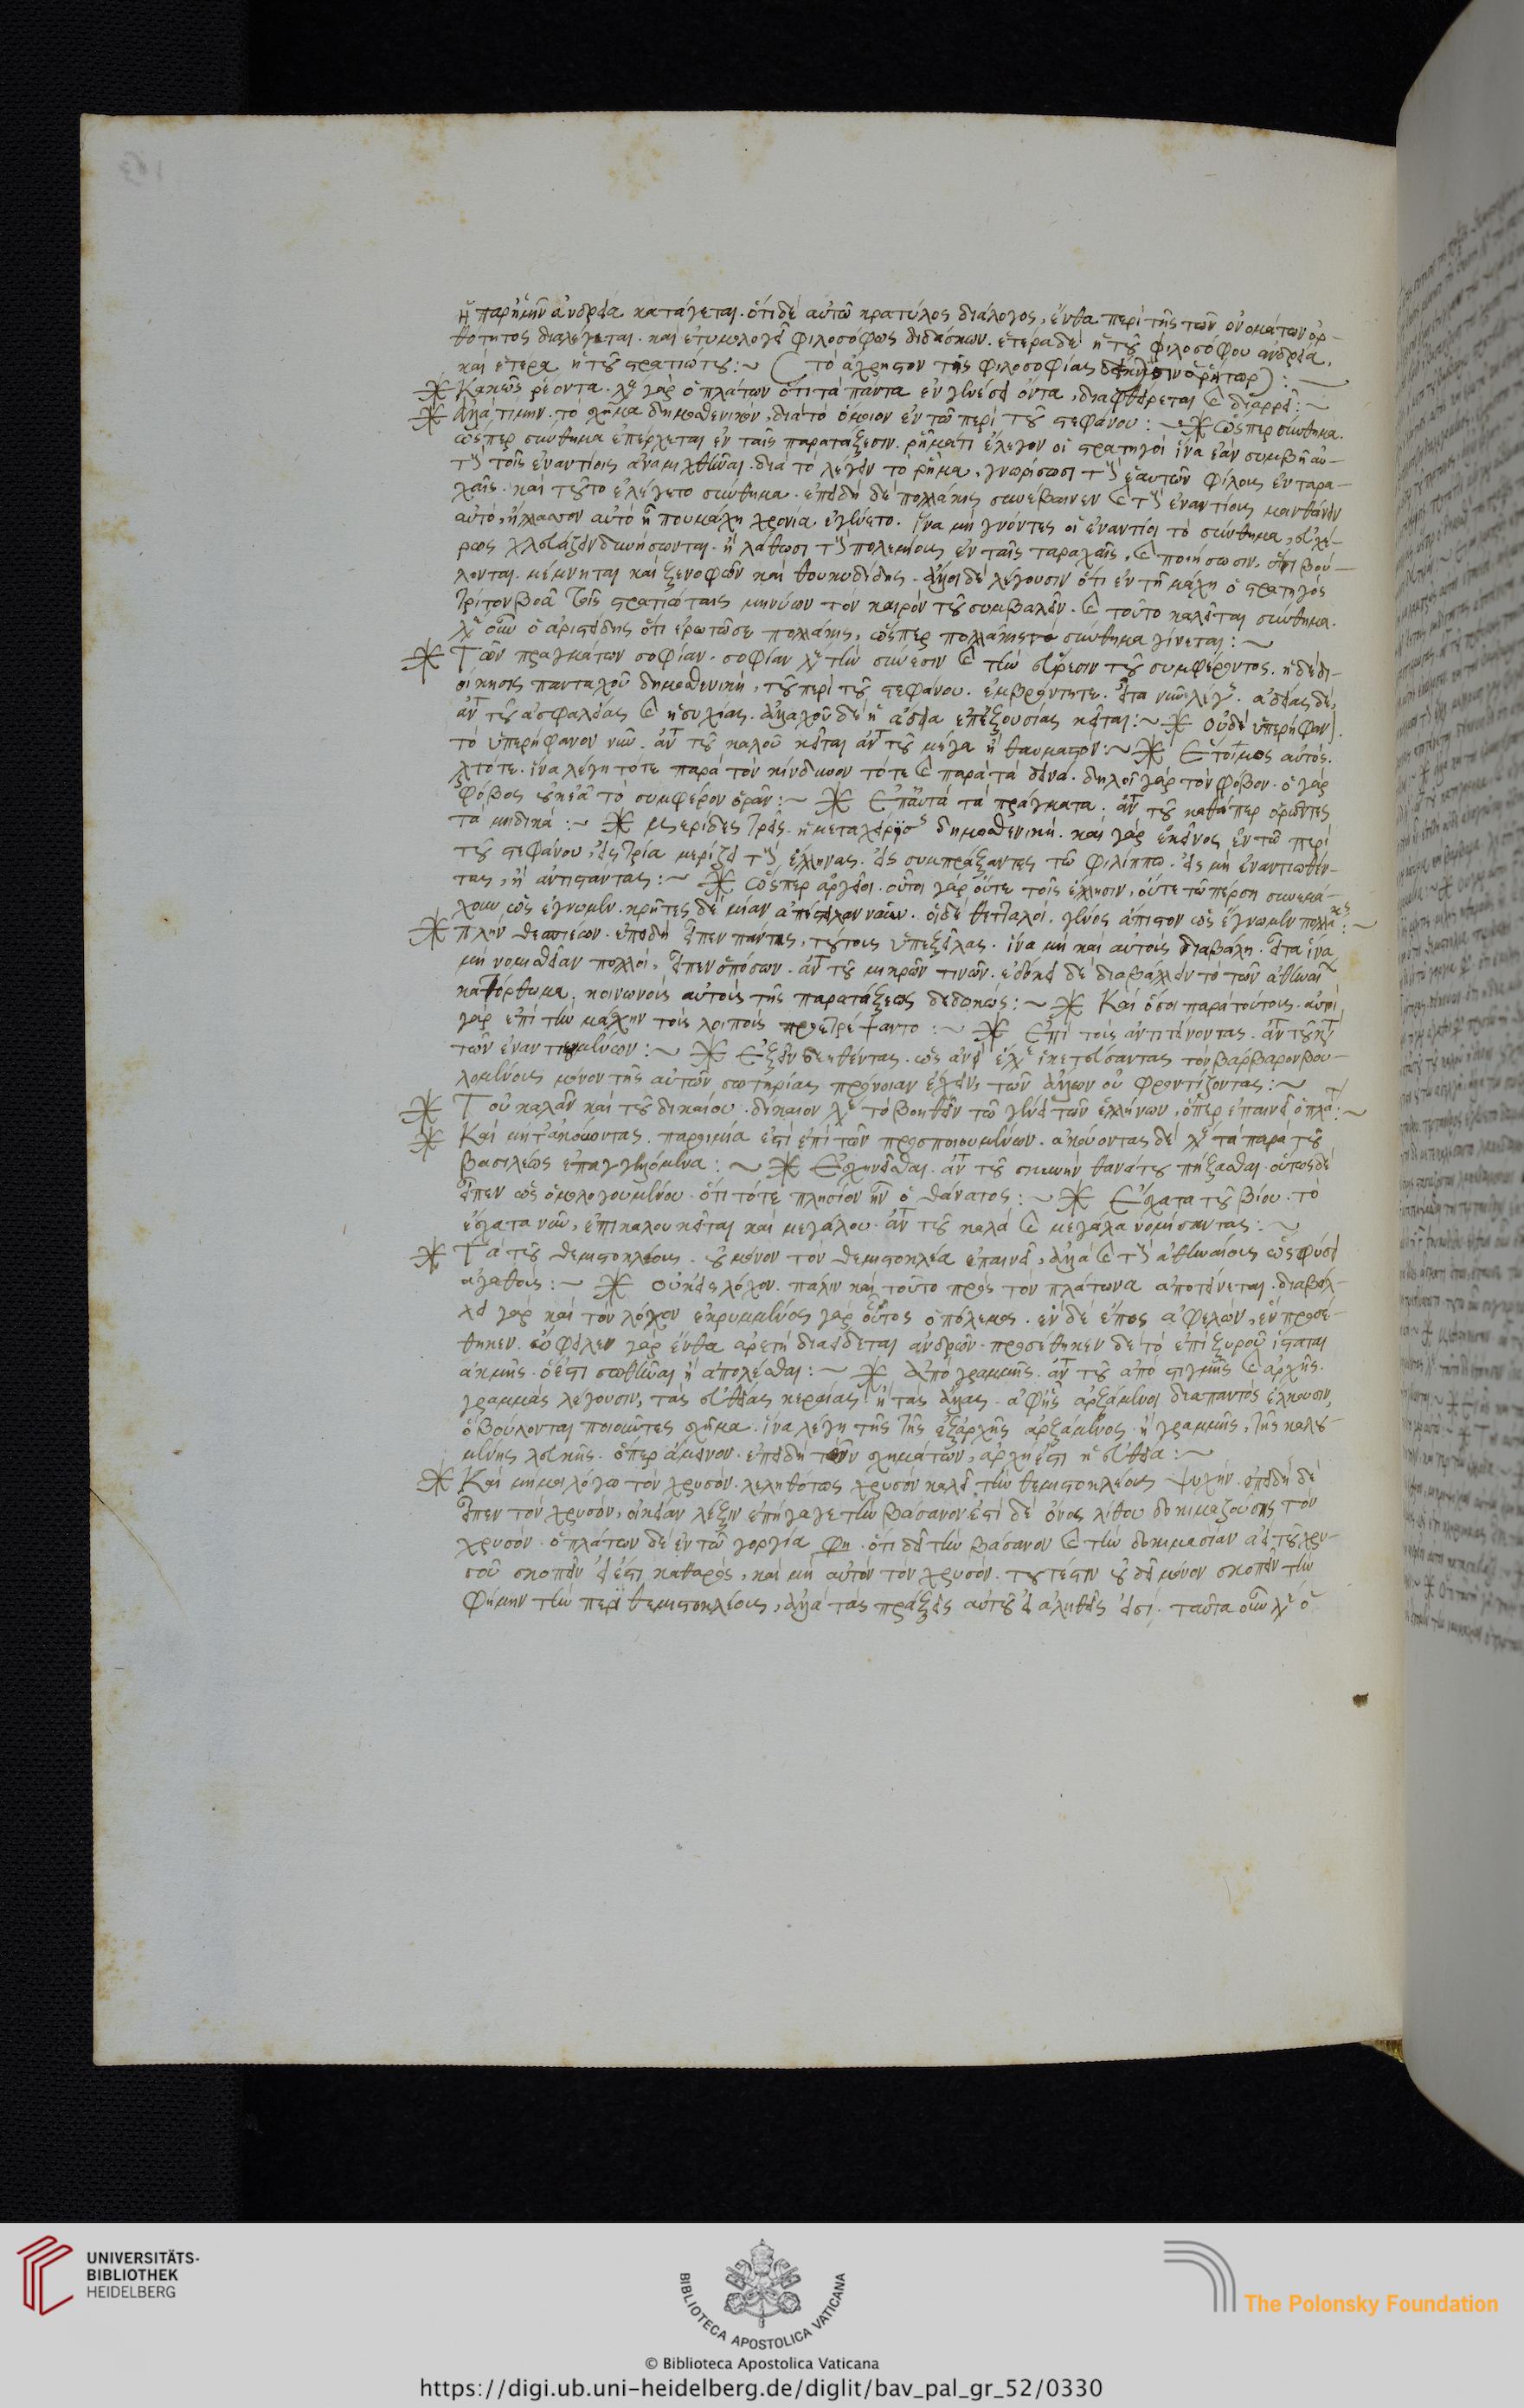 ἢ παρ' ἡμῖν ἀνδρεία κατάγεται. ὅτι δὲ αὐτῶ κρατύλος διάλογος, ἔνθα περὶ τῆς τῶν ὀνομάτων ὀρ-
θότητος διαλέγεται. καὶ ἐτυμολογεῖ φιλοσόφως διδάσκων. ἑτέρα δὲ ἡ τοῦ φιλοσόφου ἀνδρεία,
καὶ ἑτέρα ἡ τοῦ στρατιώτου :~ (τὸ ἄχρηστον τῆς φιλοσοφίας ὁ ῥήτωρ) :
Κακῶς ῥέοντα. γὰρ ὁ πλάτων ὅτι τὰ πάντα ἐν γενέσει ὄντα, διαφθείρεται καὶ διαρρεῖ :~
Ἀλλὰ τί μην. τὸ σχῆμα δημοσθενικὸν, διὰ τὸ ὅμοιον ἐν τῶ περὶ τοῦ στεφάνου :~ ὥσπερ σύνθημα.
ὥσπερ σύνθημα ἐπέρχεται ἐν ταῖς παρατάξεσιν. ῥήματι ἔλεγον οἱ στρατηγοὶ ἵνα ἐὰν συμβῆ αὐ-
τοὺς τοῖς ἐναντίοις ἀναμιχθῆναι. διὰ τὸ λέγειν τὸ ῥῆμα, γνωρίσωσι τοὺς ἑαυτῶν φίλους ἐν ταρα-
χαῖς. καὶ τοῦτο ἐλέγετο σύνθημα. ἐπειδὴ δὲ πολλάκις συνέβαινεν καὶ τοὺς ἐναντίους μανθάνειν
αὐτὸ, ἤλλασσον αὐτὸ ἢ που μάχη χρονία ἐγένετο. ἵνα μὴ γνόντες οἱ ἐναντίοι τὸ σύνθημα, εὐχε-
ρῶς χλευάζειν δυνήσωνται. ἢ λάθωσι τοὺς πολεμίους ἐν ταῖς ταραχαῖς, καὶ ποιήσωσιν, ὅτι βού-
λονται. μέμνηται καὶ ξενοφῶν καὶ θουκυδίδης. ἄλλοι δὲ λέγουσιν ὅτι ἐν τῆ μάχη ὁ στρατηγὸς
τρίτον βοᾶ τοῖς στρατιώταις μηνύων τὸν καιρὸν τοῦ συμβαλεῖν. καὶ τοῦτο καλεῖται σύνθημα.
οὖν ὁ ἀριστείδης ὅτι ἐρωτῶσι πολλάκις, ὥσπερ πολλάκις τὸ σύνθημα γίνεται :~
Τῶν πραγμάτων σοφίαν. σοφίαν τὴν σύνεσιν καὶ τὴν εὕρεσιν τοῦ συμφέροντος. ἡ δὲ δι-
οίκησις πανταχοῦ δημοσθενικὴ, τοῦ περὶ τοῦ στεφάνου. ἐμβρόντητε. εἶτα νῦν λέγεις. ἀδείας δὲ,
ἀντὶ τοῦ ἀσφαλείας καὶ ἡσυχίας. ἀλλαχοῦ δὲ ἡ ἄδεια ἐπ' ἐξουσίας κεῖται :~ οὐδὲ ὑπερήφανον.
τὸ ὑπερήφανον νῦν. ἀντὶ τοῦ καλοῦ κεῖται ἀντὶ τοῦ μέγα ἢ θαυμαστόν :~ Ἕτοιμος αὐτός.
τότε. ἵνα λέγη τότε παρὰ τὸν κίνδυνον τότε καὶ παρὰ τὰ δεινά. δηλοῖ γὰρ τὸν φόβον. ὁ γὰρ
φόβος οὐκ ἐᾶ τὸ συμφέρον ὁρᾶν :~ Ἐπ' αὐτὰ τὰ πράγματα. ἀντὶ τοῦ καθάπερ ὁρῶντες
τὰ μηδικά :~ μερίδες τρεῖς. ἡ μεταχείρισις δημοσθενική. καὶ γὰρ ἐκεῖνος ἐν τῶ περὶ
τοῦ στεφάνου, εἰς τρία μερίζει τοὺς ἕλληνας. εἰς συμπράξαντες τῶ φιλίππω. εἰς μὴ ἐναντιωθέν-
τας, ἢ ἀντιστάντας :~ ὥσπερ ἀργεῖοι. οὗτοι γὰρ οὔτε τοῖς ἕλλησιν, οὔτε τῶ πέρση συνεμά-
χουν ὡς ἔγνωμεν. κρῆτες δὲ μίαν ἀπέστειλαν ναῦν. οἱ δὲ θετταλοὶ, γένος ἄπιστον ὡς ἔγνωμεν πολλάκις :~
πλὴν θεσπιέων. ἐπειδὴ εἶπεν πάντας, τούτους ὑπεξεῖλας. ἵνα μὴ καὶ αὐτοὺς διαβάλη. εἶτα ἵνα
μὴ νομισθεῖαν πολλοὶ, εἶπεν ὁπόσων. ἀντὶ τοῦ μικρῶν τινῶν. ἐδόκει δὲ διαβάλλειν τὸ τῶν ἀθηναίων
κατόρθωμα. κοινωνοὺς αὐτοὺς τῆς παρατάξεως δεδωκώς :~ Καὶ ὅσοι παρὰ τούτοις. αὐτοὶ
γὰρ ἐπὶ τὴν μάχην τοὺς λοιποὺς προετρέψαντο :~ Ἐπὶ τοὺς ἀντιτείνοντας. ἀντὶ τοῦ κατὰ
τῶν ἐναντιουμένων :~ Ἐξὸν δεηθέντας. ὡς ἀνεὶ ἔλεγε ἱκετεύσαντας τὸν βάρβαρον βου-
λομένους μόνον τῆς αὐτῶν σωτηρίας πρόνοιαν ἔχειν, τῶν ἄλλων οὐ φροντίζοντας :~
Τοῦ καλοῦ καὶ τοῦ δικαίου. δίκαιον τὸ βοηθεῖν τῶ γένει τῶν ἑλλήνων, ὅπερ ἐπαινεῖ ὁ πλάτων :~
Καὶ μήτ' ἀκούοντας. παροιμία ἐστὶ ἐπὶ τῶν προσποιουμένων. ἀκούοντας δὲ τὰ παρὰ τοῦ
βασιλέως ἐπαγγελλόμενα :~ ἀντὶ τοῦ θανάτου οὕτως δὲ
εἶπεν ὡς ὁμολογουμένου. ὅτι τότε πλησίον ἦν ὁ θάνατος :~ Ἔσχατα τοῦ βίου. τὸ
ἔσχατα νῦν, ἐπὶ καλοῦ κεῖται καὶ μεγάλου. ἀντὶ τοῦ καλὰ καὶ μεγάλα νομίσαντας :~
Τὰ τοῦ θεμιστοκλέους. οὐ μόνον τὸν θεμιστοκλέα ἐπαινεῖ, ἀλλὰ καὶ τοὺς ἀθηναίους ὡς φύσει
ἀγαθούς :~ οὐκ εἰς λόχον. πάλιν καὶ τοῦτο πρὸς τὸν πλάτωνα ἀποτείνεται. διαβάλ-
λει γὰρ καὶ τὸν λόχον κεκρυμμένος γὰρ οὗτος ὁ πόλεμος. ἓν δὲ ἔπος ἀφελὼν, ἓν προσέ-
θηκεν. ἀφεῖλεν γὰρ ἔνθα ἀρετὴ διαείδεται ἀνδρῶν. προσέθηκεν δὲ τὸ ἐπὶ ξυροῦ ἵσταται
ἀκμῆς. ὅ ἐστι σωθῆναι ἢ ἀπολέσθαι :~ Ἀπὸ γραμμῆς. ἀντὶ τοῦ ἀπὸ στιγμῆς καὶ ἀρχῆς.
γραμμὰς λέγουσιν, τὰς εὐθείας κεραίας, ἢ τὰς ἄλλας. ἀφ' ἧς ἀρξάμενοι διαπαντὸς ἕλκουσιν,
ὃ βούλονται ποιοῦντες σχῆμα. ἵνα λέγη τῆς τῆς ἐξαρχῆς ἀρξάμενος, ἢ γραμμῆς, τῆς καλου-
μένης λευκῆς. ὅπερ ἄμεινον. ἐπειδὴ τῶν σχημάτων, ἀρχή ἐστι ἡ εὐθεῖα :~
Καὶ μή μοι λόγω τὸν χρυσόν. λεληθότως χρυσὸν καλεῖ τὴν θεμιστοκλέους ψυχήν. ἐπειδὴ δὲ
εἶπεν τὸν χρυσὸν, οἰκείαν λέξιν ἐπήγαγε τὴν βάσανον ἐστὶ δὲ ὄνος λίθου δοκιμαζούσης τὸν
χρυσόν. ὁ πλάτων δὲ ἐν τῶ γοργία φη. ὅτι δεῖ τὴν βάσανον καὶ τὴν δοκιμασίαν ἀεὶ τοῦ χρυ-
σοῦ σκοπεῖν εἴ ἐστι καθαρὸς, καὶ μὴ αὐτὸν τὸν χρυσόν. τουτέστιν οὐ δεῖ μόνον σκοπεῖν τὴν
φήμην τὴν περὶ θεμιστοκλέους, ἀλλὰ τὰς πράξεις αὐτοῦ εἰ ἀληθεῖς εἰσί. ταῦτα οὖν ὁ
UNIVERSITÄTS-
BIBLIOTHEK
HEIDELBERG
BIBLIOTECA APOSTOLICA VATICANA
The Polonsky Foundation
© Biblioteca Apostolica Vaticana
https://digi.ub.uni-heidelberg.de/diglit/bav_pal_gr_52/0330